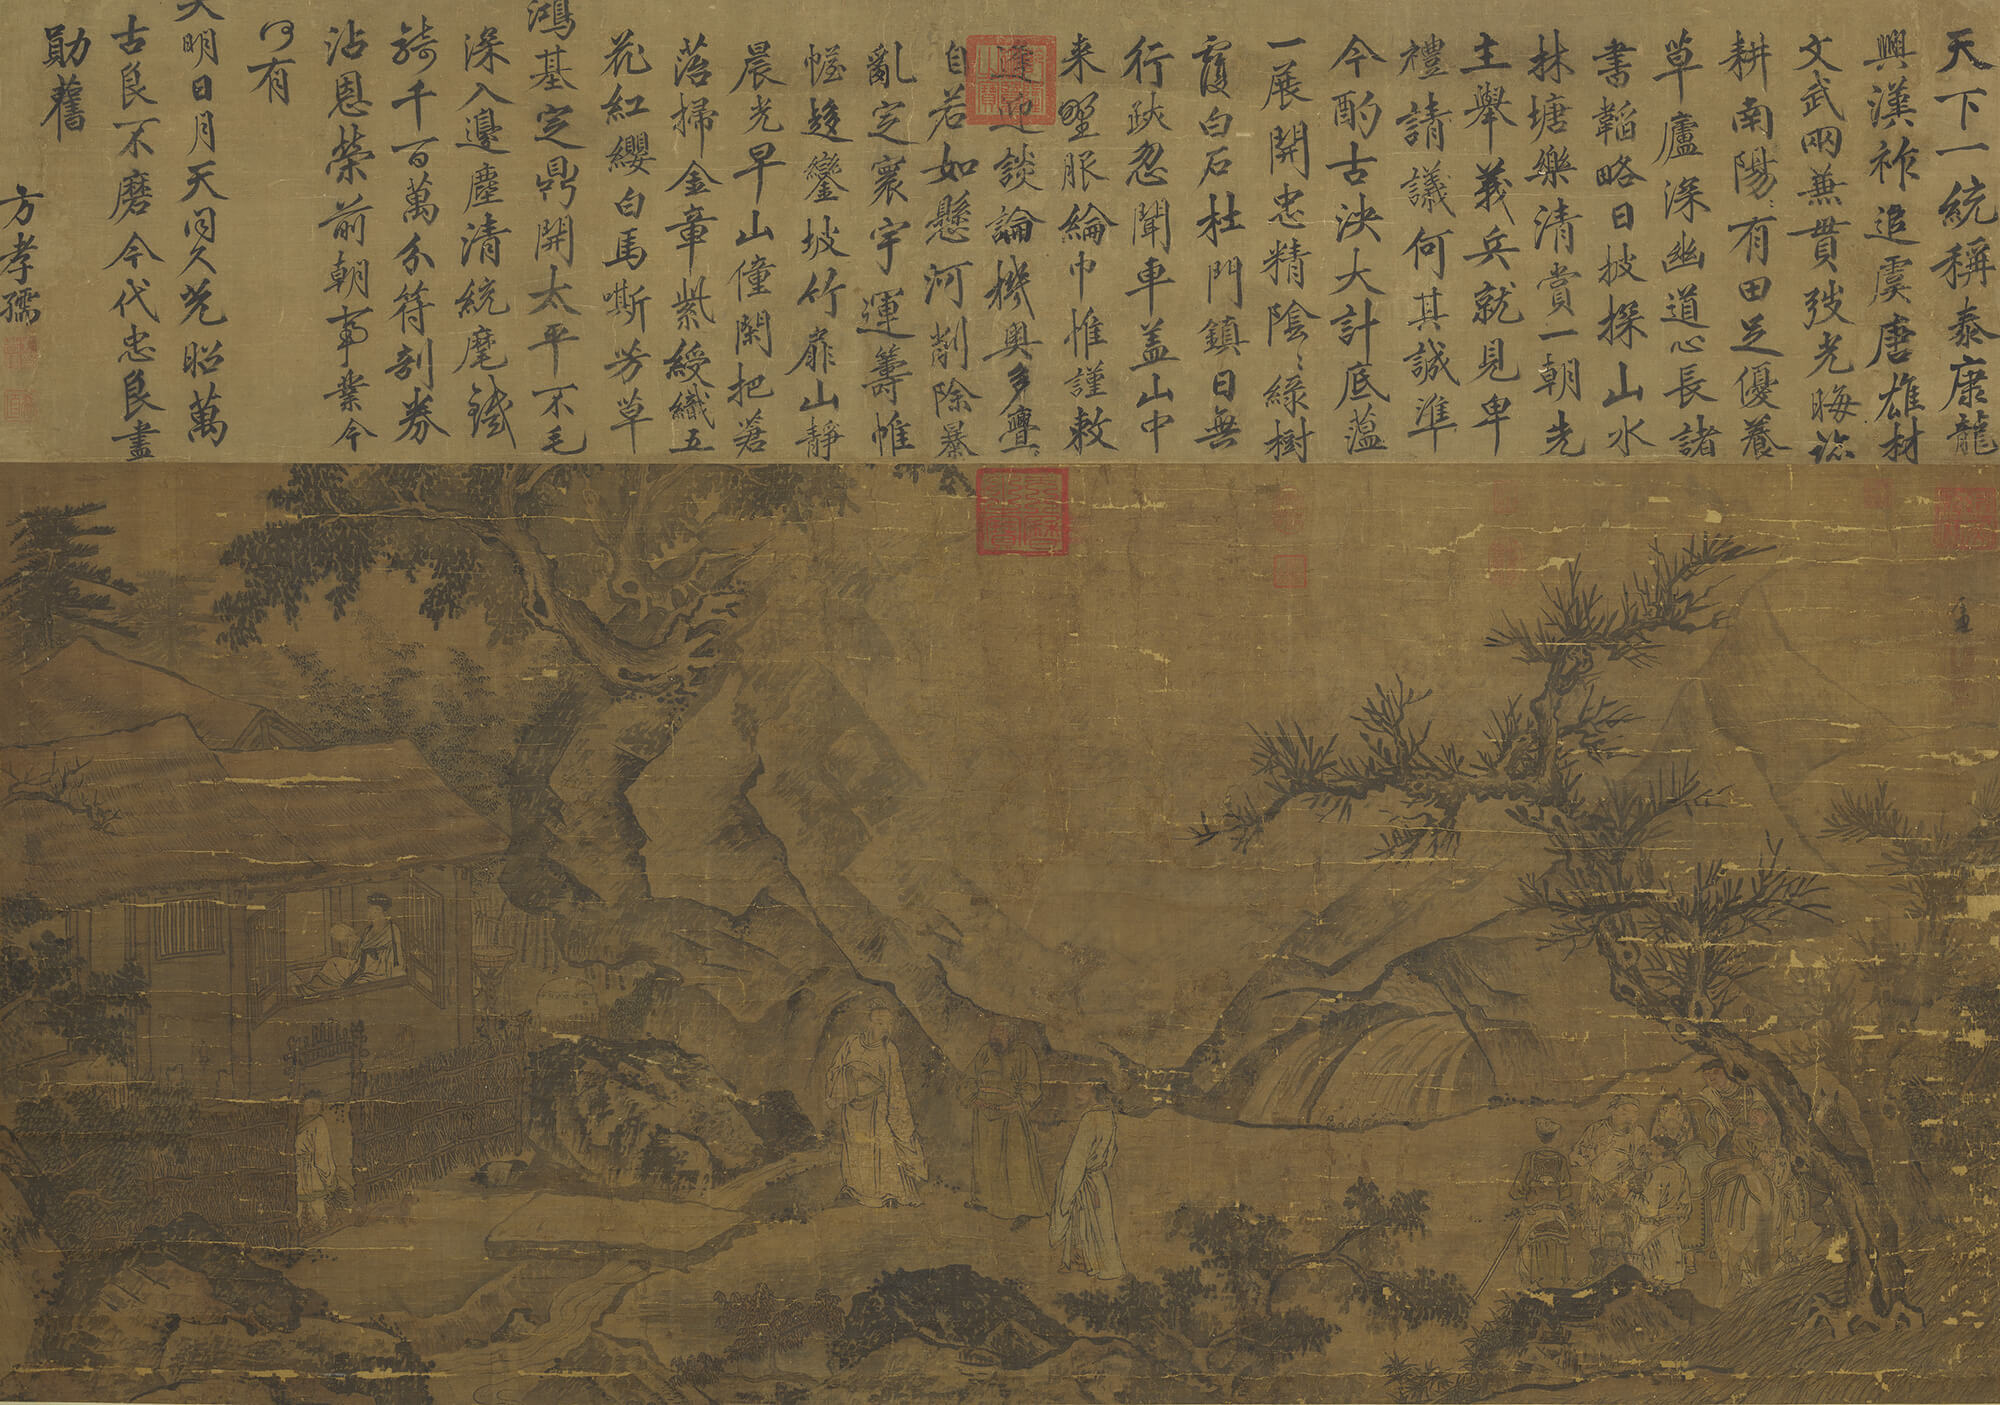 天下一統稱泰康龍
興漢祚追虞唐雄材
文武兩兼貫弢光晦跡
耕南陽〻有田足優養
草廬深幽道心長諸
書韜略日披探山水
林塘樂清賞一朝先
主舉義兵就見卑
禮請議何其誠準
今酌古決大計底蘊
一展開忠精陰〻綠樹
覆白石杜門鎮日無
行跡忽聞車盖山中
来野服綸巾惟謹敕
逢迎談論機奧多亹〻
自若如懸河削除暴
亂定寰宇運籌帷
幄鑾坡竹扉山靜
晨光早山僮閑把蒼
落掃金章紫綬織五
花紅纓白馬嘶芳草
鴻基定鼎開太平不毛
深入邊塵清統麾鐵
騎千百萬分符剖券
沾恩榮前朝事業今
何有
大明日月天同久光昭萬
古良不磨今代忠良盡
勛舊
方孝孺